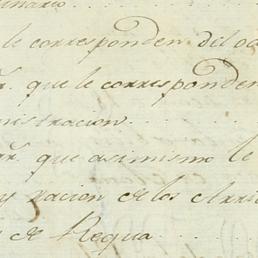 le corresponden del oc
que le corresponden
nistracion
que asimismo le
y racion de los Arri
de Requa